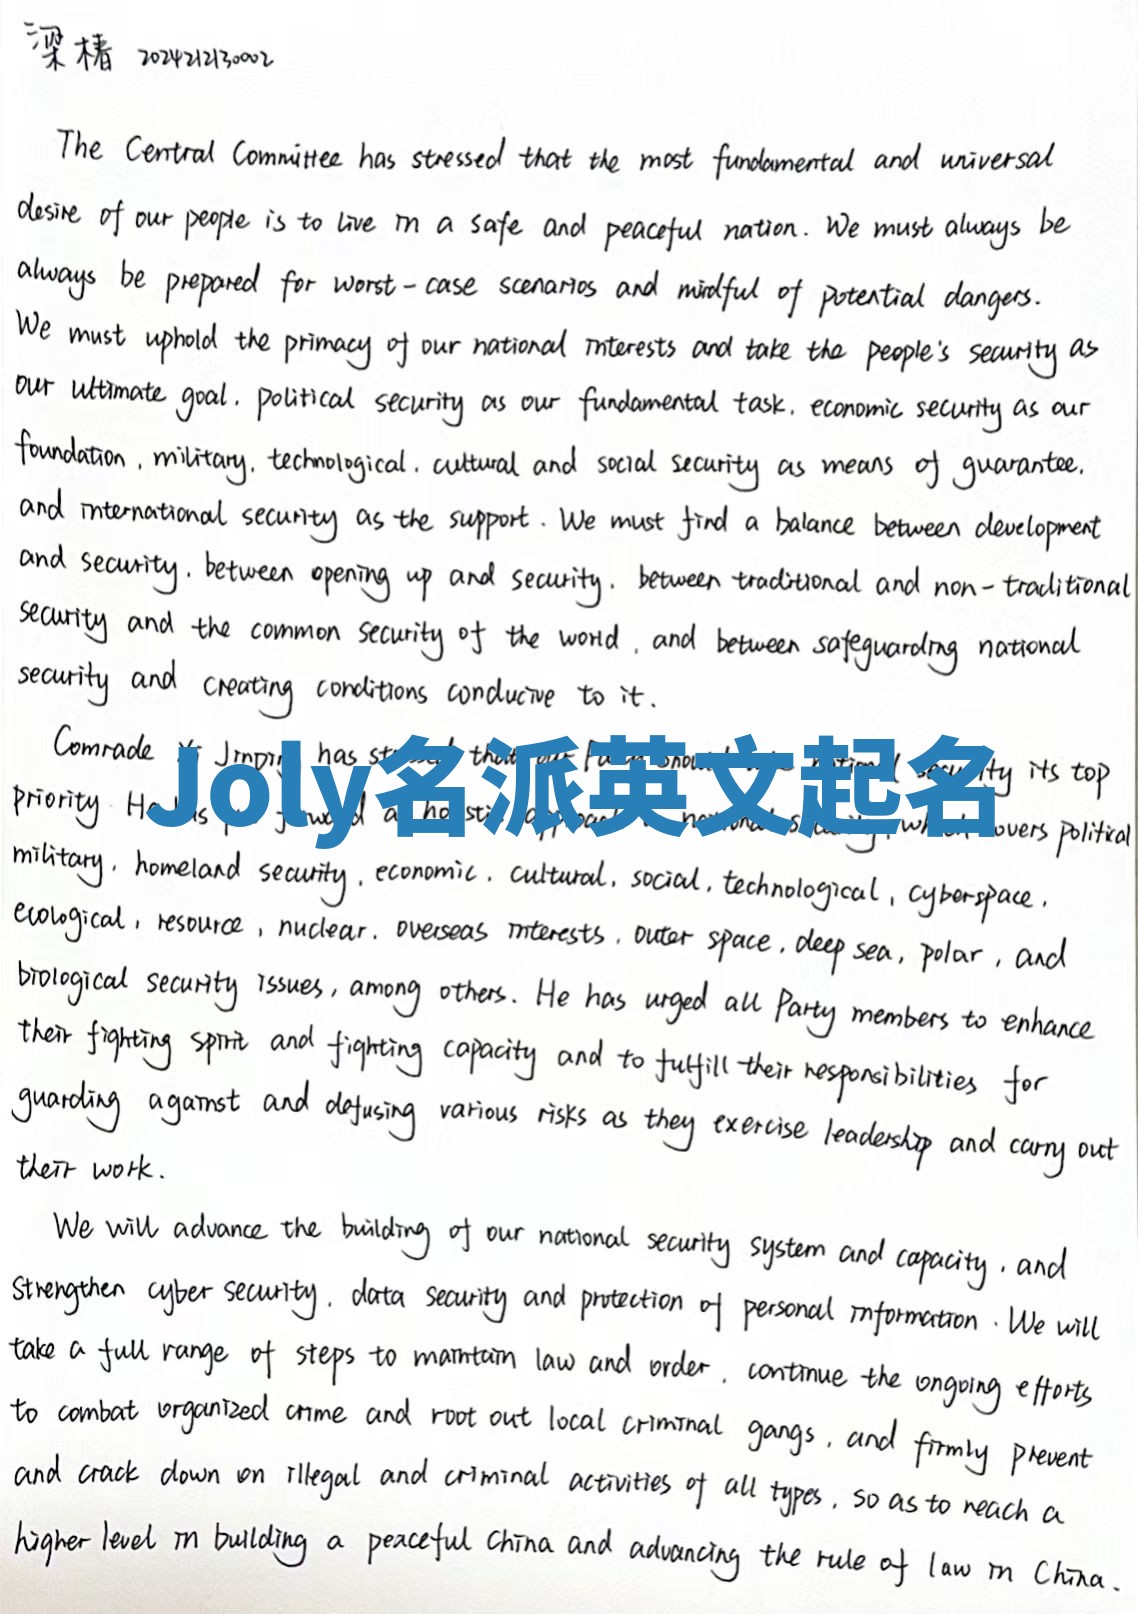 梁椿 2024212130002
The Central Committee has stressed that the most fundamental and universal
desire of our people is to live in a safe and peaceful nation. We must always be
always be prepared for worst-case scenarios and mindful of potential dangers.
We must uphold the primacy of our national interests and take the people's security as
our ultimate goal, political security as our fundamental task, economic security as our
foundation, military, technological, cultural and social security as means of guarantee,
and international security as the support. We must find a balance between development
and security, between opening up and security, between traditional and non-traditional
security and the common security of the world, and between safeguarding national
security and creating conditions conducive to it.
Comrade Jinping has that its top
Joly名派英文起名
priority. a covers political
military, homeland security, economic, cultural, social, technological, cyberspace,
ecological, resource, nuclear, overseas interests, outer space, deep sea, polar, and
biological security issues, among others. He has urged all Party members to enhance
their fighting spirit and fighting capacity and to fulfill their responsibilities for
guarding against and defusing various risks as they exercise leadership and carry out
their work.
We will advance the building of our national security system and capacity, and
strengthen cyber security, data security and protection of personal information. We will
take a full range of steps to maintain law and order, continue the ongoing efforts
to combat organized crime and root out local criminal gangs, and firmly prevent
and crack down on illegal and criminal activities of all types, so as to reach a
higher level in building a peaceful China and advancing the rule of law in China.